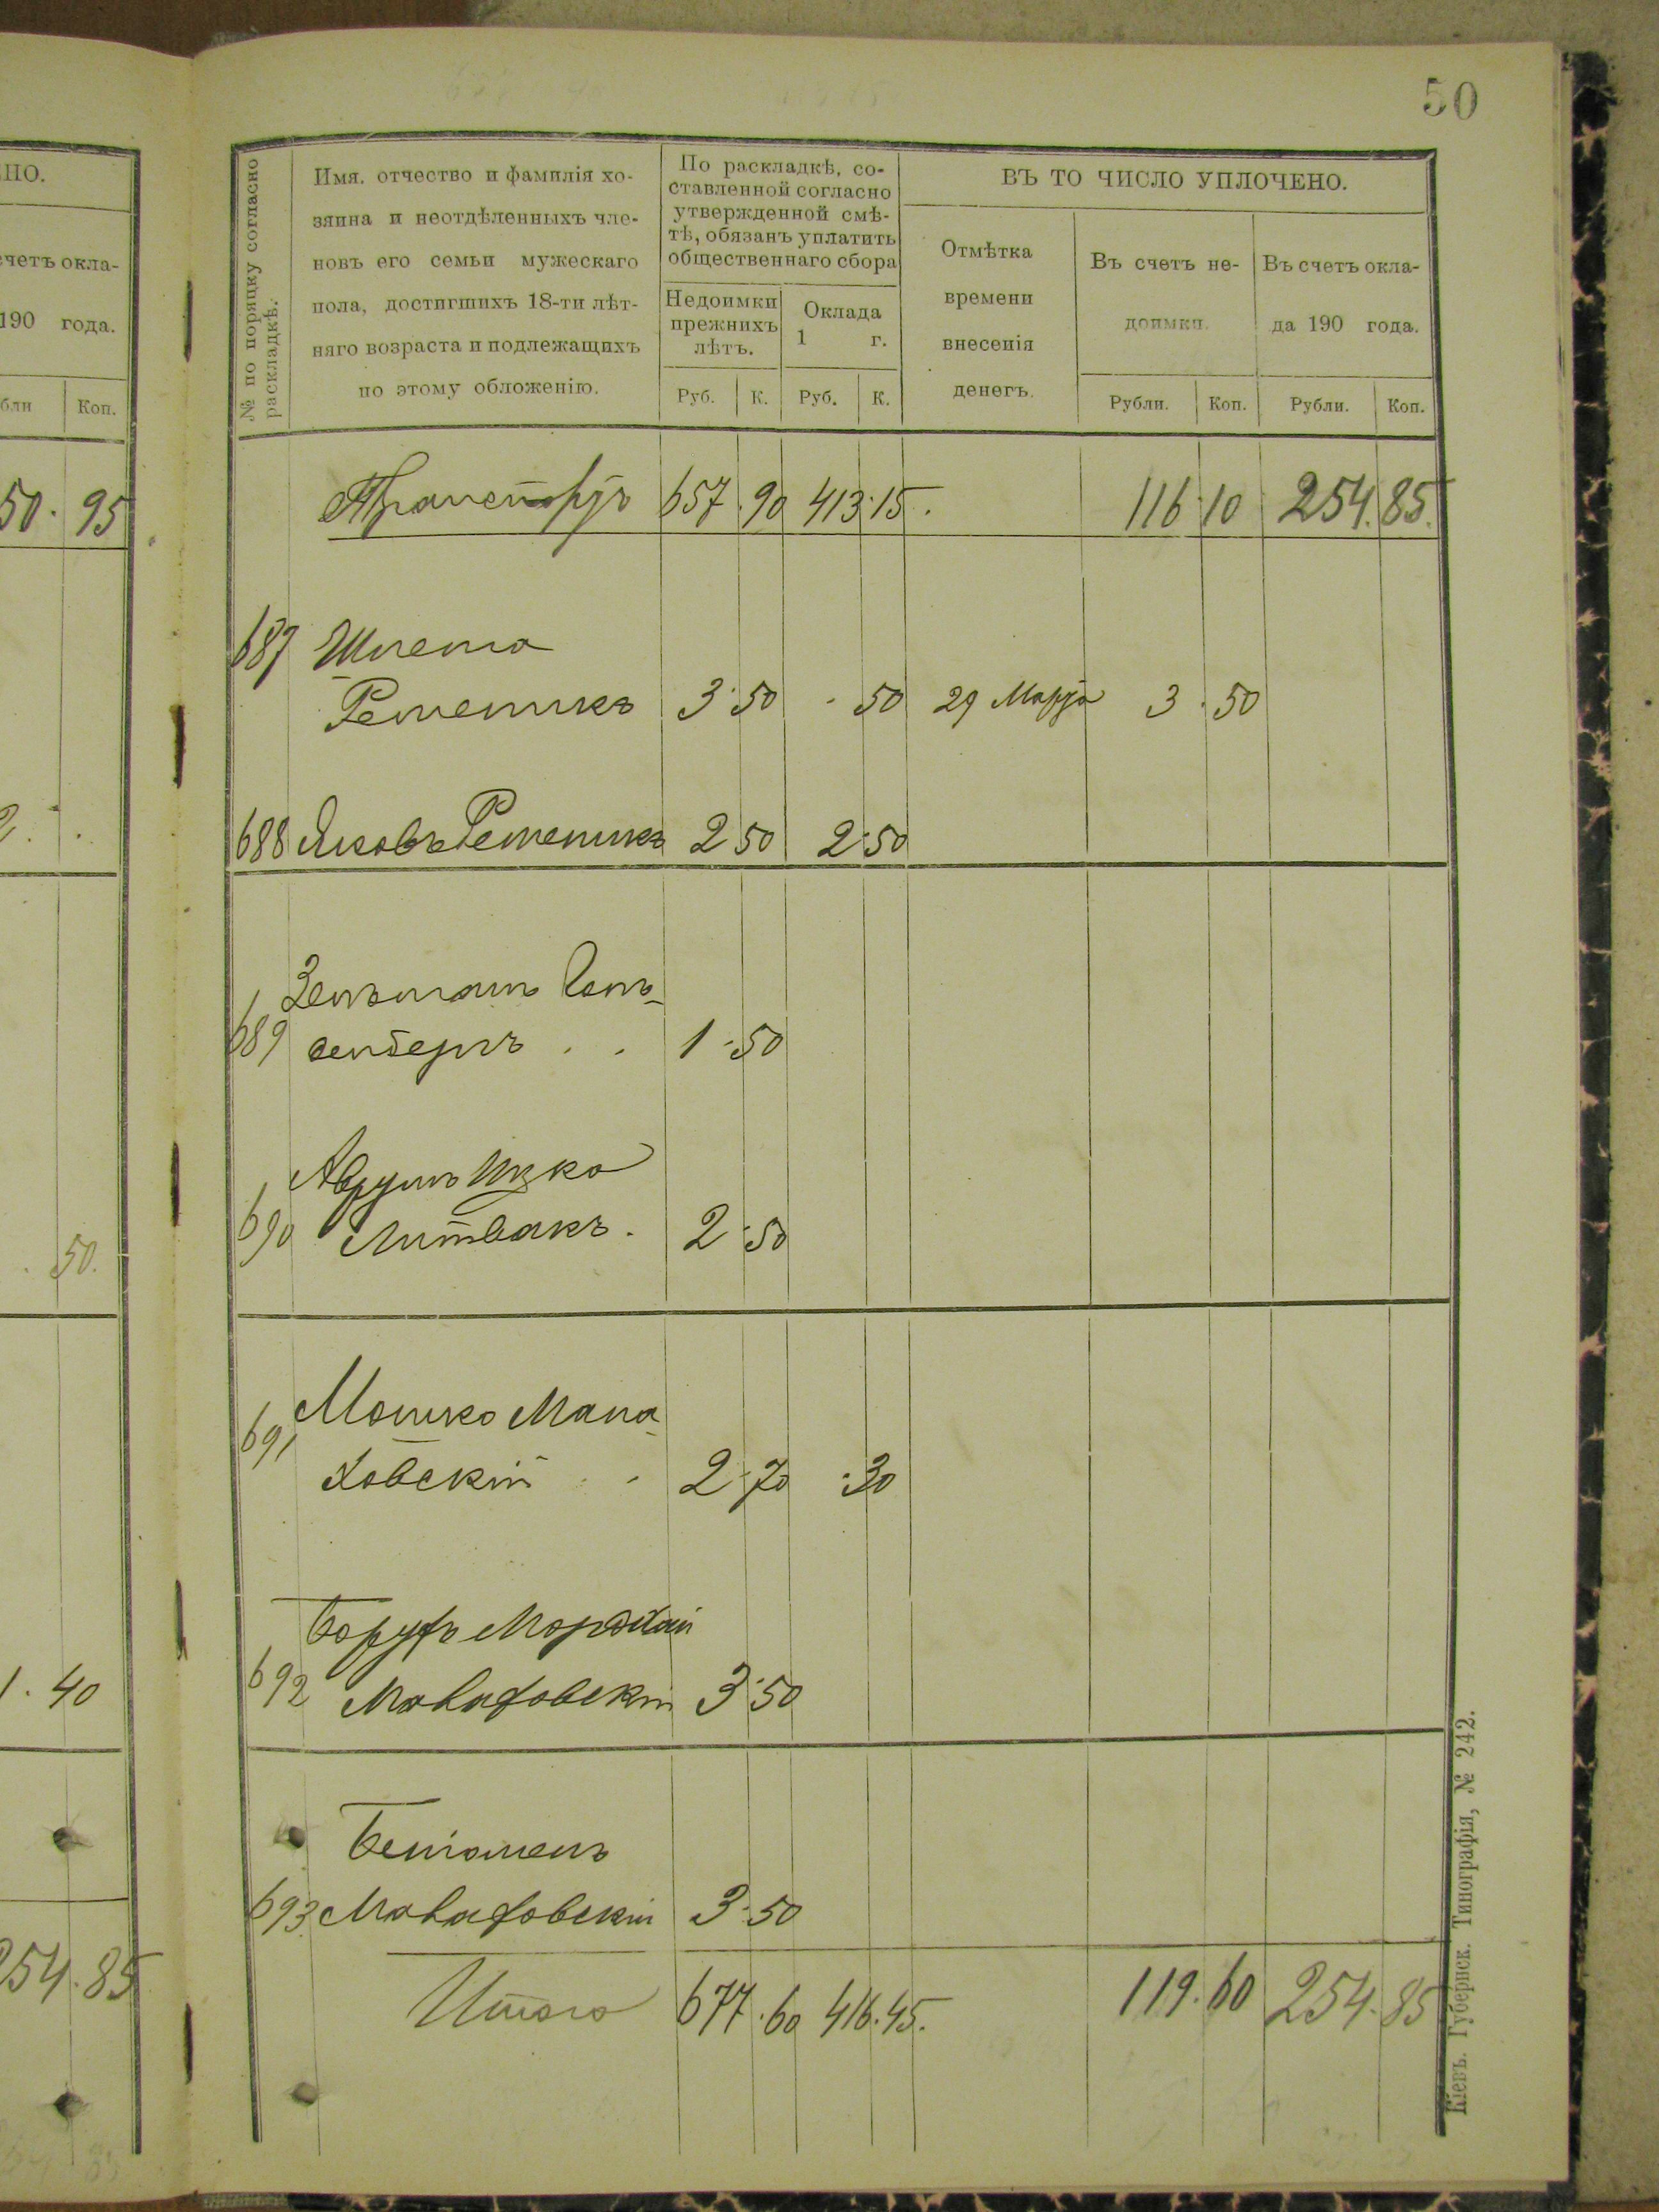 50
НО.
счетъ окла-
190 года.
Коп.
50. 95
50.
1. 40
254. 85
№ по порядку согласно
раскладкѣ.
Имя, отчество и фамилія хо-
зяина и неотдѣленныхъ чле-
новъ его семьи мужескаго
пола, достигшихъ 18-ти лѣт-
няго возраста и подлежащихъ
по этому обложенію.
По раскладкѣ, со-
ставленной согласно
утвержденной смѣ-
тѣ, обязанъ уплатить
общественнаго сбора
Недоимки
прежнихъ
лѣтъ.
Оклада
1 г.
Руб. К. Руб. К.
ВЪ ТО ЧИСЛО УПЛОЧЕНО.
Отмѣтка
времени
внесенія
денегъ.
Въ счетъ не-
доимки.
Въ счетъ окла-
да 190 года.
Рубли. Коп. Рубли. Коп.
Транспортъ 657 . 90 413 . 15 . 116 . 10 254 . 85.
687 Шлема
Ременикъ 3 . 50 . 50 29 Марта 3 . 50
688 Яковъ Ременикъ 2 50 2 . 50
Зельманъ
689 1 . 50
Аврумъ Ицко
690 Литвакъ . 2 . 50
Мошко Мана-
691 ховскій . . 2 . 70 . 30
Борухъ Мордхай
692 Манаховскій 3 . 50
Беніоменъ
693 Манаховскій 3 . 50
Итого 677 . 60 416 . 45. 119 . 60 254 . 85
Кіевъ. Губернск. Типографія, № 242.